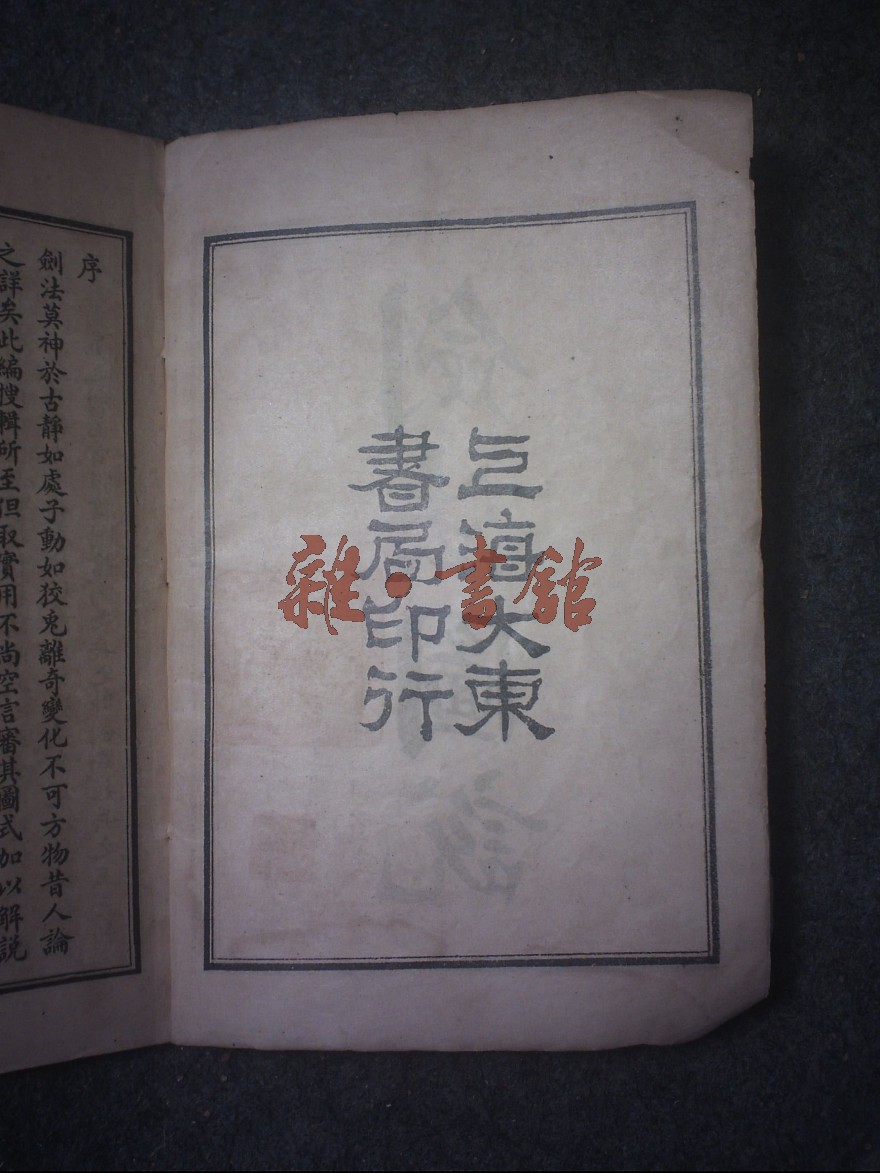 上海大東
書局印行
雜·書館
序
劍法莫神於古靜如處子動如狡兎離奇變化不可方物昔人論
之詳矣此編搜輯所至但取實用不尚空言審其圖式加以解説